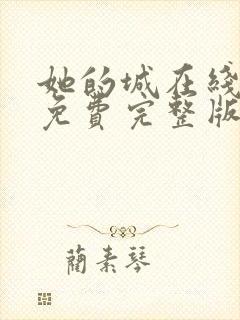 她的城在綫
免費完整版
蘭素琴